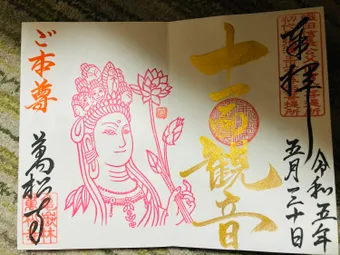 奉拝
令和五年
五月三十日
十一面觀音
ご本尊
萬松寺